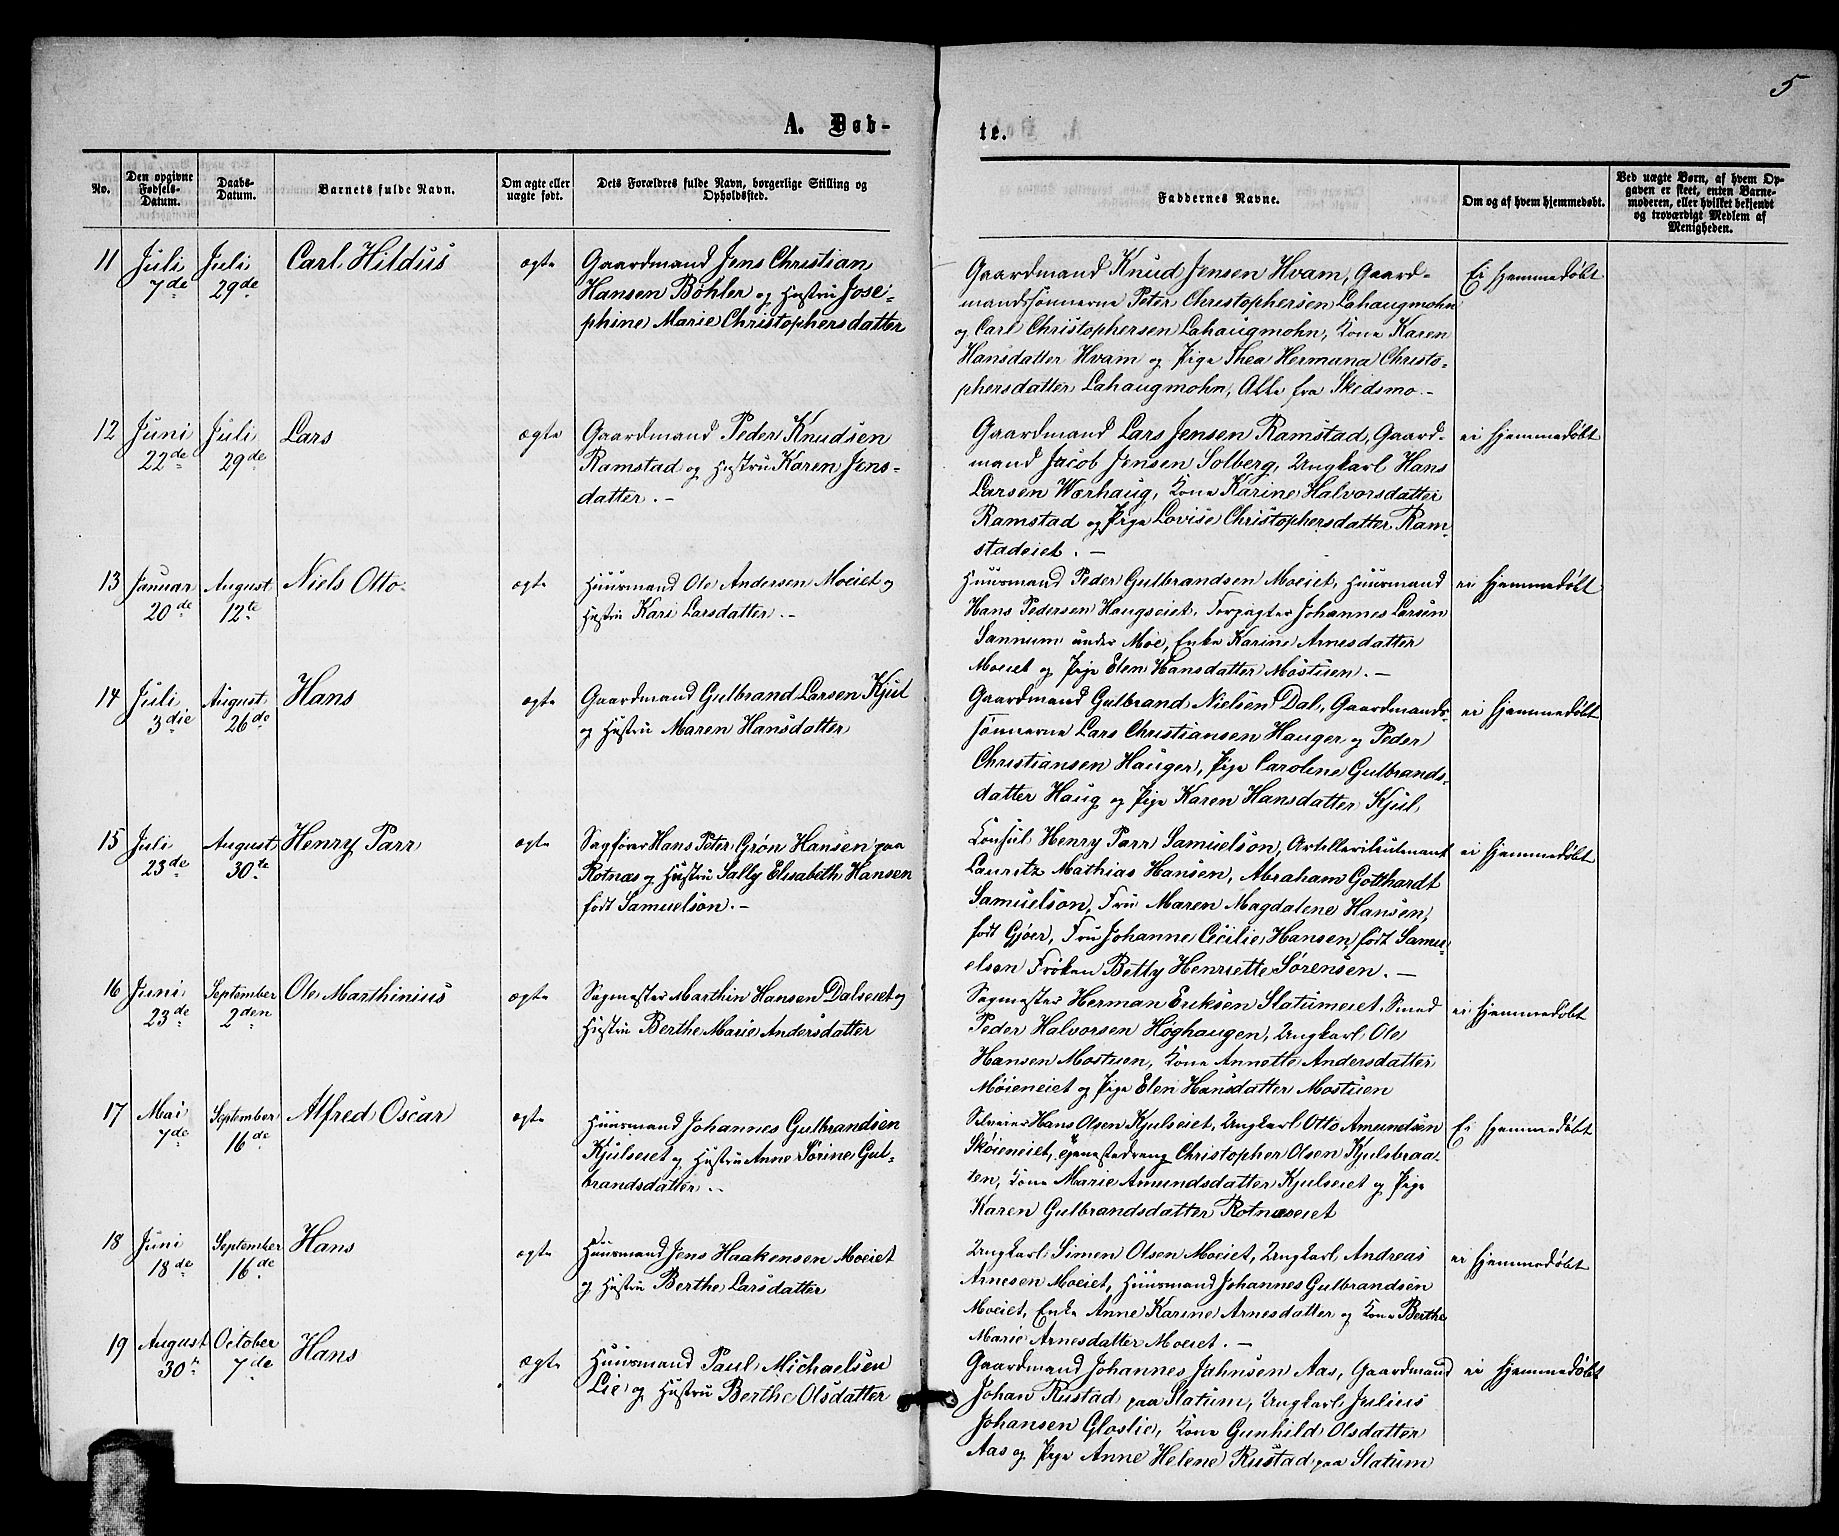 5
A. Døb-
te.
No.
Den opgivne Fødsels-Datum.
Daabs-Datum.
Barnets fulde Navn.
Om ægte eller uægte født.
Dets Forældres fulde Navn, borgerlige Stilling og Opholdssted.
Faddernes Navne.
Om og af hvem hjemmedøbt.
Ved uægte Børn, af hvem Opgaven er skeet, enten Barnemoderen, eller hvilket bekjendt og troværdigt Medlem af Menigheden.
11 Juli 7de Juli 29de Carl Hildus ægte
Gaardmand Jens Christian
Hansen Bøhler og Hustru Jose-
phine Marie Christophersdatter
Gaardmand Knud Jensen Hvam, Gaard-
mandssønnerne Peter Christophersen Lahaugmohn
og Carl Christophersen Lahaugmohn, Kone Karen
Hansdatter Hvam og Pige Thea Hermana Christo-
phersdatter Lahaugmohn, Alle fra Skedsmo.-
Ei hjemmedøbt
12 Juni 22de Juli 29de Lars ægte
Gaardmand Peder Knudsen
Ramstad og Hustru Karen Jens-
datter.-
Gaardmand Lars Jensen Ramstad, Gaard-
mand Jacob Jensen Solberg, Ungkarl Hans
Larsen Wærhaug, Kone Karine Halvorsdatter
Ramstad og Pige Lovise Christophersdatter Ram-
stadeiet.-
ei hjemmedøbt
13 Januar 20de August 12te Niels Otto ægte
Huusmand Ole Andersen Moeiet og
Hustru Kari Larsdatter.-
Huusmand Peder Gulbrandsen Moeiet, Huusmand
Hans Pedersen Haugseiet, Forpagter Johannes Larsen
Sannum under Moe, Enke Karine Arnesdatter
Moeiet og Pige Elen Hansdatter Mostuen.-
ei hjemmedøbt
14 Juli 3die August 26de Hans ægte
Gaardmand Gulbrand Larsen Kjul
og Hustru Maren Hansdatter
Gaardmand Gulbrand Nielsen Dal, Gaardmands-
sønnerne Lars Christiansen Hauger og Peder
Christiansen Hauger, Pige Carolene Gulbrands-
datter Haug og Pige Karen Hansdatter Kjul,
ei hjemmedøbt
15 Juli 23de August 30te Henry Parr ægte
Sagfører Hans Peter Grøn Hansen paa
Rotnæs og Hustru Sally Elisabeth Hansen
født Samuelson.-
Consul Henry Parr Samuelson, Artillerilieutenant
Lauritz Mathias Hansen, Abraham Gotthardt
Samuelson, Fru Maren Magdalene Hansen,
født Gjøer, Fru Johanne Cecilie Hansen, født Samu-
elsen Frøken Betty Henriette Sørensen.-
ei hjemmedøbt
16 Juni 23de September 2den Ole Marthinius ægte
Sagmester Marthin Hansen Dalseiet og
Hustru Berthe Marie Andersdatter
Sagmester Herman Eriksen Slatumeiet, Smed
Peder Halvorsen Høghaugen, Ungkarl Ole
Hansen Mostuen, Kone Annette Andersdatter
Møieneiet og Pige Elen Hansdatter Mostuen
ei hjemmedøbt
17 Mai 7de September 16de Alfred Oscar ægte
Huusmand Johannes Gulbrandsen
Kjulseiet og Hustru Anne Sørine Gul-
brandsdatter.-
Hans Olsen Kjulseiet, Ungkarl Otto Amundsen
Skøieneiet, Tjenestedreng Christopher Olsen Kjulsbraa-
ten, Kone Marie Amundsdatter Kjulseiet og Pige
Karen Gulbrandsdatter Rotnæseiet
Ei hjemmedøbt
18 Juni 18de September 16de Hans ægte
Huusmand Jens Haakensen Moeiet
og Hustru Berthe Larsdatter
Ungkarl Simen Olsen Moeiet, Ungkarl Andreas
Arnesen Moeiet, Huusmand Johannes Gulbrandsen
Moeiet, Enke Anne Karine Arnesdatter og Kone Berthe
Marie Arnesdatter Moeiet.-
ei hjemmedøbt
19 August 30te October 7de Hans ægte
Huusmand Paul Michaelsen
Lie og Hustru Berthe Olsdatter
Gaardmand Johannes Jahnsen Aas, Gaardmand
Johan Rustad paa Slatum, Ungkarl Julius
Johansen Gloslie, Kone Gunhild Olsdatter
Aas og Pige Anne Helene Rustad paa Slatum
ei hjemmedøbt